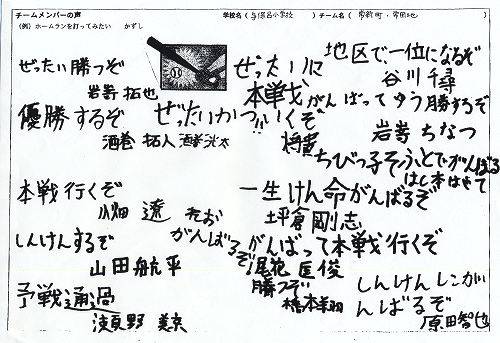 チームメンバーの声
学校名（与保呂小学校）チーム名（常新町・常団地）
（例）ホームランを打ってみたい　かずし
ぜったい勝つぞ
岩嵜拓也
優勝するぞ
酒巻拓人
ぜったいかつ!!
ぜったいに
本戦いくぞ
将貴
地区で、一位になるぞ
谷川千尋
がんばってゆう勝するぞ
岩嵜ちなつ
ちびっ子そふとでがんばる
はし本はやて
本戦行くぞ
小畑遼
れお
がんばるぞ
一生けん命がんばるぞ
坪倉剛志
しんけんするぞ
山田航平
がんばって本戦行くぞ
尾花匡俊
予戦通過
瀬野
勝つぞ
しんけんしこんがんばるぞ
原田智也